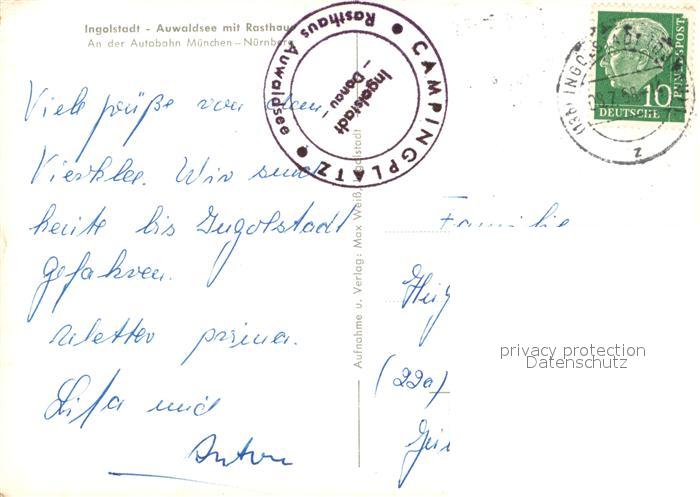 Ingolstadt - Auwaldsee mit Rasthaus
An der Autobahn München – Nürnberg
CAMPINGPLATZ
Rasthaus Auwaldsee
Ingolstadt
- Donau -
10
DEUTSCHE
BUNDESPOST
(13b) INGOLSTADT
z
Viele grüße von dem
Vierklee. Wir sind
heute bis Ingolstadt
gefahren.
Wetter prima.
Lisa und
Anton
Aufnahme u. Verlag: Max Weiß, Ingolstadt
Familie
(22a)
privacy protection
Datenschutz